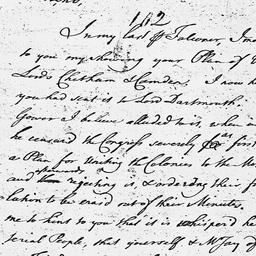 162
In my last ℔ Falconer, I me
to you my shewing your Plan of U
Lords Chatham & Camden. I now h
you had sent it to Lord Dartmouth.
Gower I believe alluded to it, when
he censured the Congress severely for as first
a Plan for Uniting the Colonies to the Mo
and afterwards rejecting it, & ordering their f
lution to be erased out of their Minutes.
me to hint to you that it is whisper'd he
serial People, that yourself & Mr Jay of